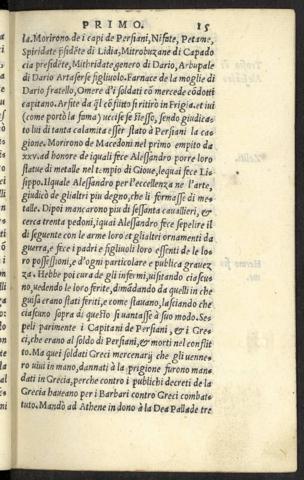 PRIMO. 15
la. Morirono de i capi de Persiani, Nifate, Petane,
Spiridate p̃sidẽte di Lidia, Mitrobuzane di Capado
cia p̃sidẽte, Mithridate, genero di Dario, Arbupale
di Dario Artaserse figliuolo. Farnace de la moglie di
Dario fratello, Omere d'i soldati cõ mercede cõdotti
capitano. Arsite da q̃l cõflitto si ritirò in Frigia, et iui
(come portò la fama) uccise se stesso, sendo giudica-
to lui di tanta calamita esser stato à Persiani la ca-
gione. Morirono de Macedoni nel primo empito da
xxv. ad honore de i quali fece Alessandro porre loro
statue di metalle nel tempio di Gioue, lequai fece Li-
sippo. Ilquale Alessandro per l'eccellenza ne l'arte,
giudicò de gli altri piu degno, che li formasse di me-
talle. Dipoi mancarono piu di sessanta cauallieri, &
cerca trenta pedoni, iquai Alessandro fece sepelire il
dì seguente con le arme loro et gli altri ornamenti da
guerra, e fece i padri e figliuoli loro essenti de le lo
ro possessioni, e d'ogni particolare e publica grauez
za. Hebbe poi cura de gli infermi, uisitando ciascu
no, uedendo le loro ferite, dimãdando da quelli in che
guisa erano stati feriti, e come stauano, lasciando che
ciascuno sopra di questo si uantasse à suo modo. Se-
pelì parimente i Capitani de Persiani, & i Gre-
ci, che erano al soldo di Persiani, & morti nel conflit
to. Ma quei soldati Greci mercenarij che gli uenne-
ro uiui in mano, dannati à la prigione furono man-
dati in Grecia, perche contro i publichi decreti de la
Grecia haueano per i Barbari contro Greci combat-
tuto. Mandò ad Athene in dono à la Dea Pallade tre